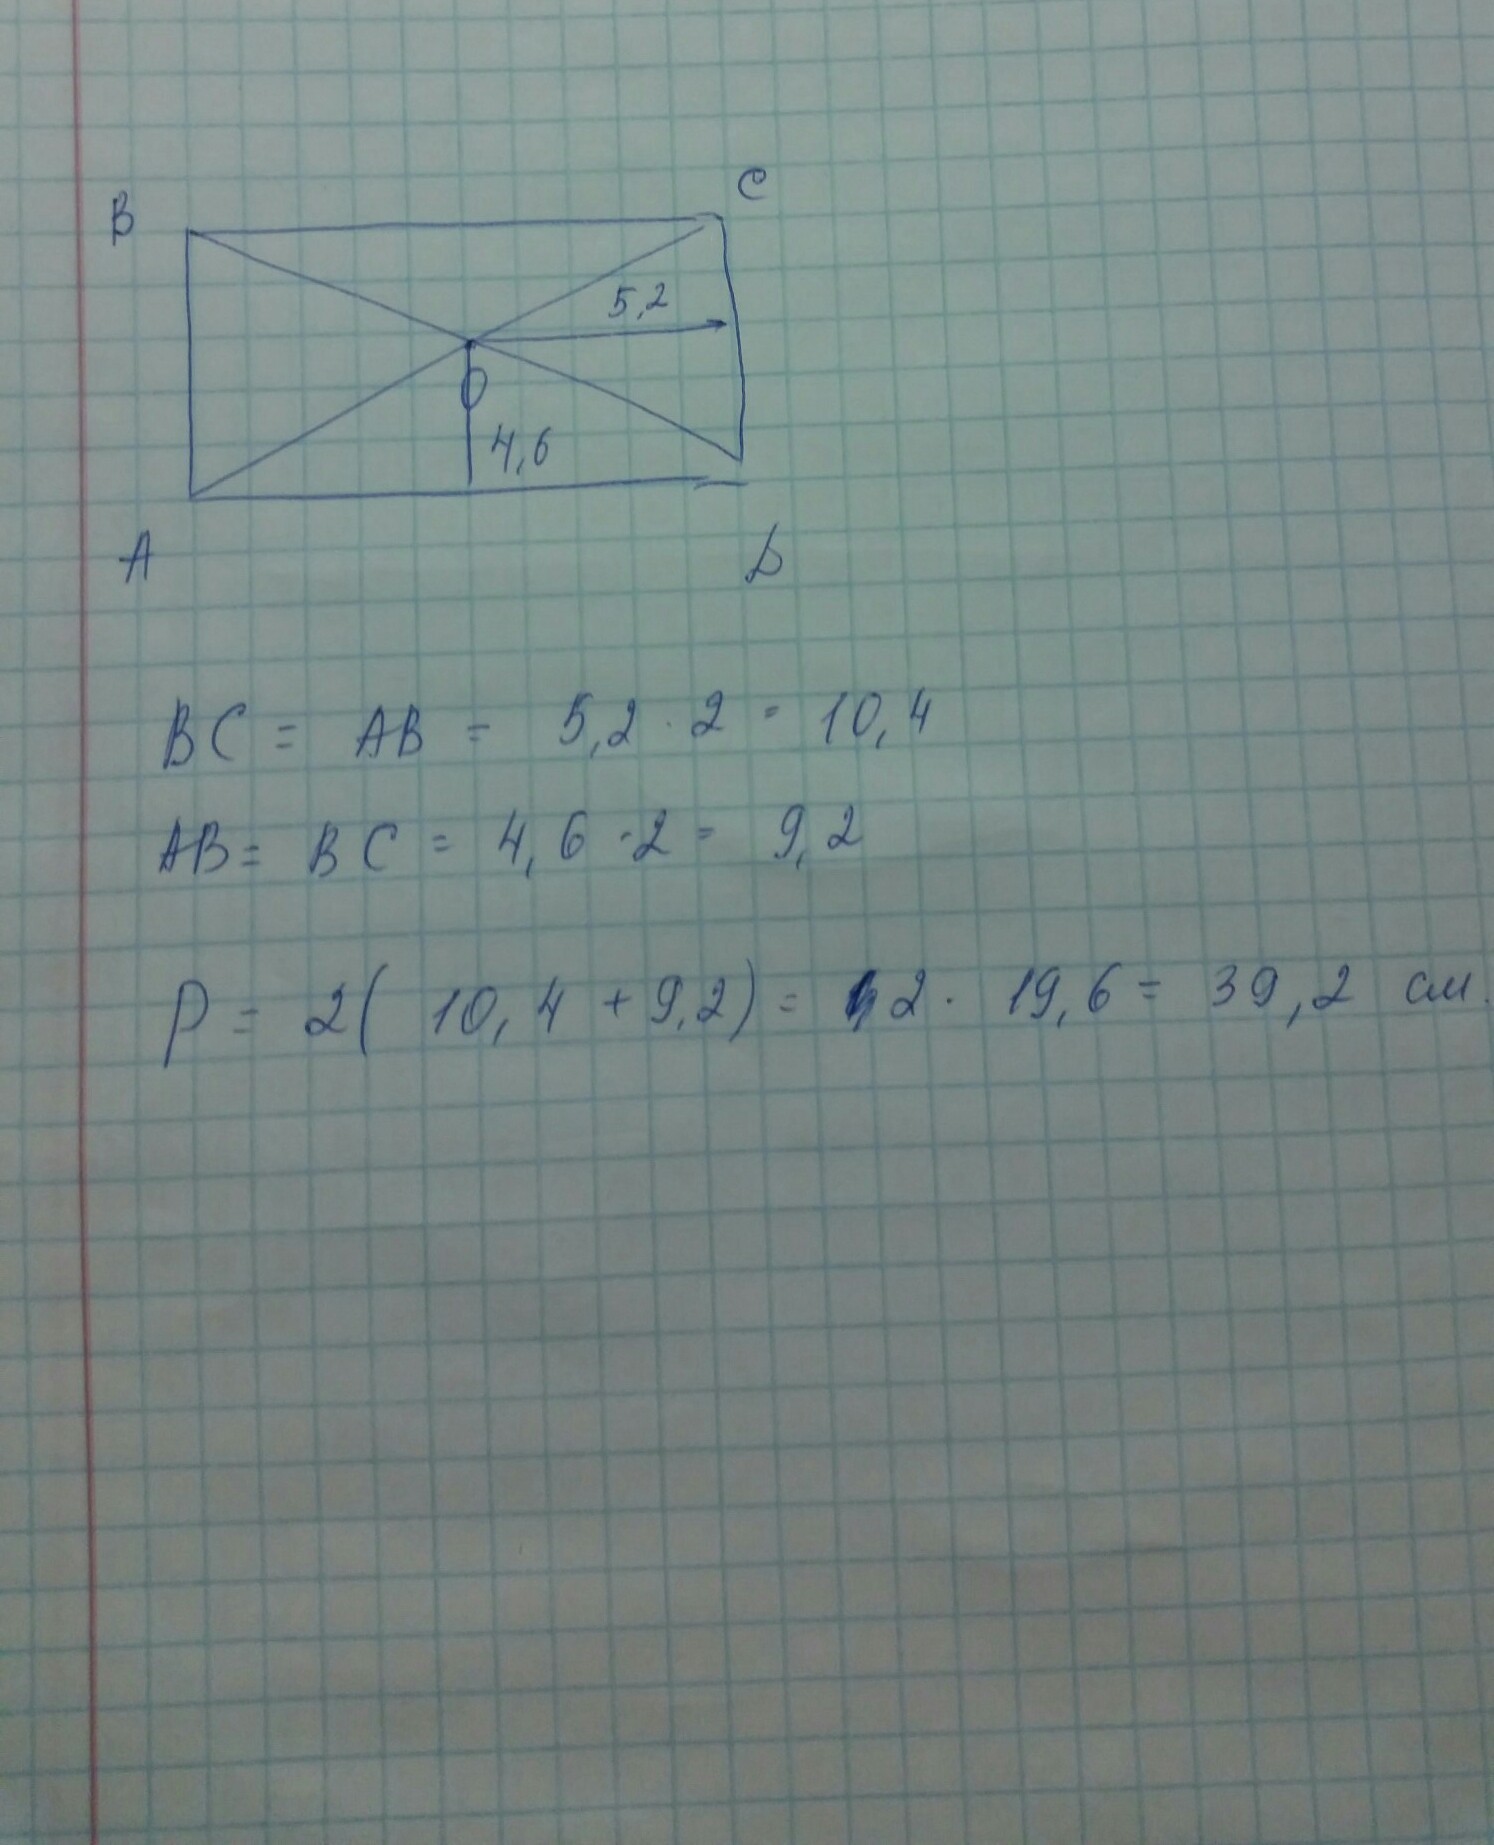 B
C
5,2
O
4,6
A
D
BC = AB = 5,2 · 2 = 10,4
AB = BC = 4,6 · 2 = 9,2
P = 2( 10,4 + 9,2) = 2 · 19,6 = 39,2 см.